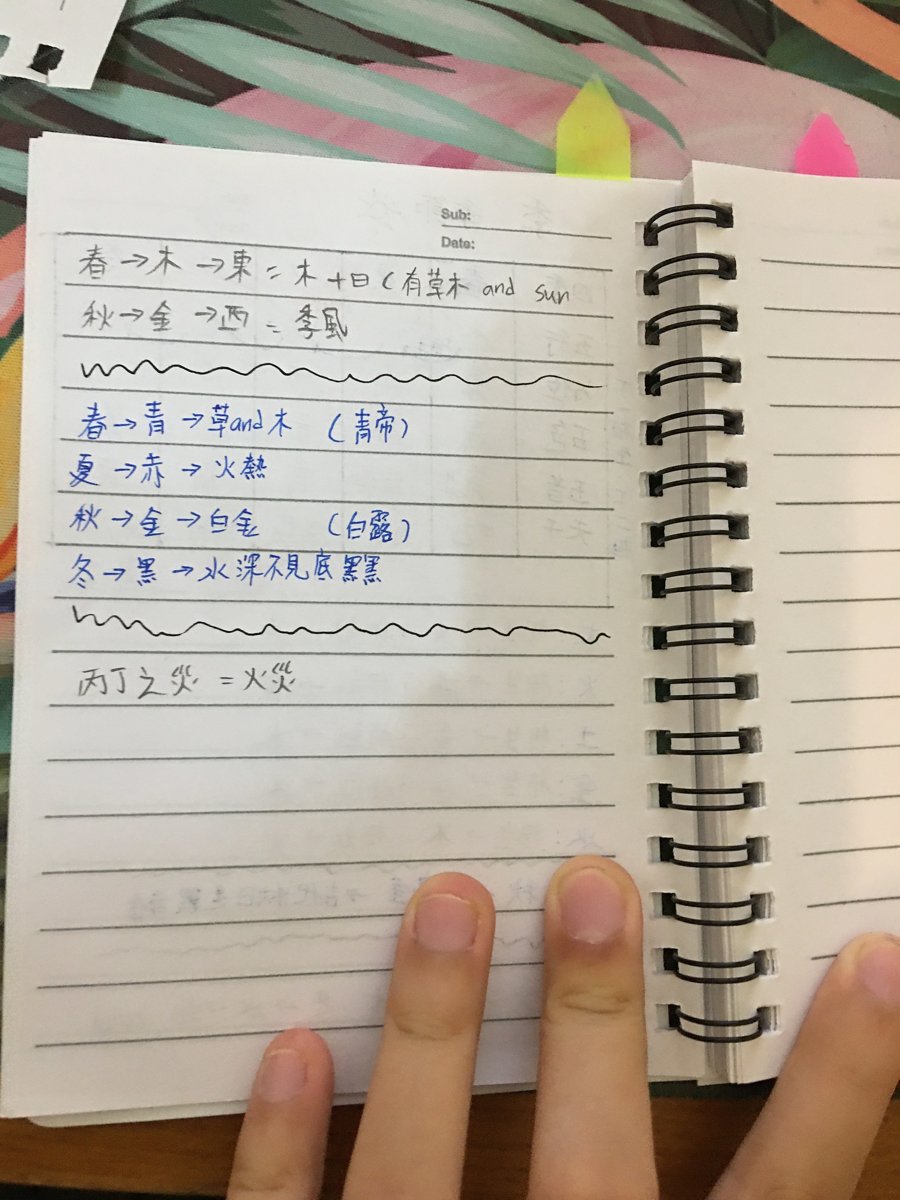 Sub:
Date:
春→木→東=木+日(有草木 and sun
秋→金→西=季風
春→青→草and木 (青帝)
夏→赤→火熱
秋→金→白金 (白露)
冬→黑→水深不見底黑黑
丙丁之災=火災